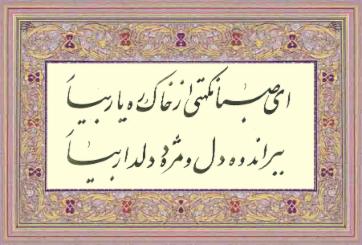 ای صبا نکهتی از خاک ره یار بیا
ببر اندوه دل و مژده دلدار بیا